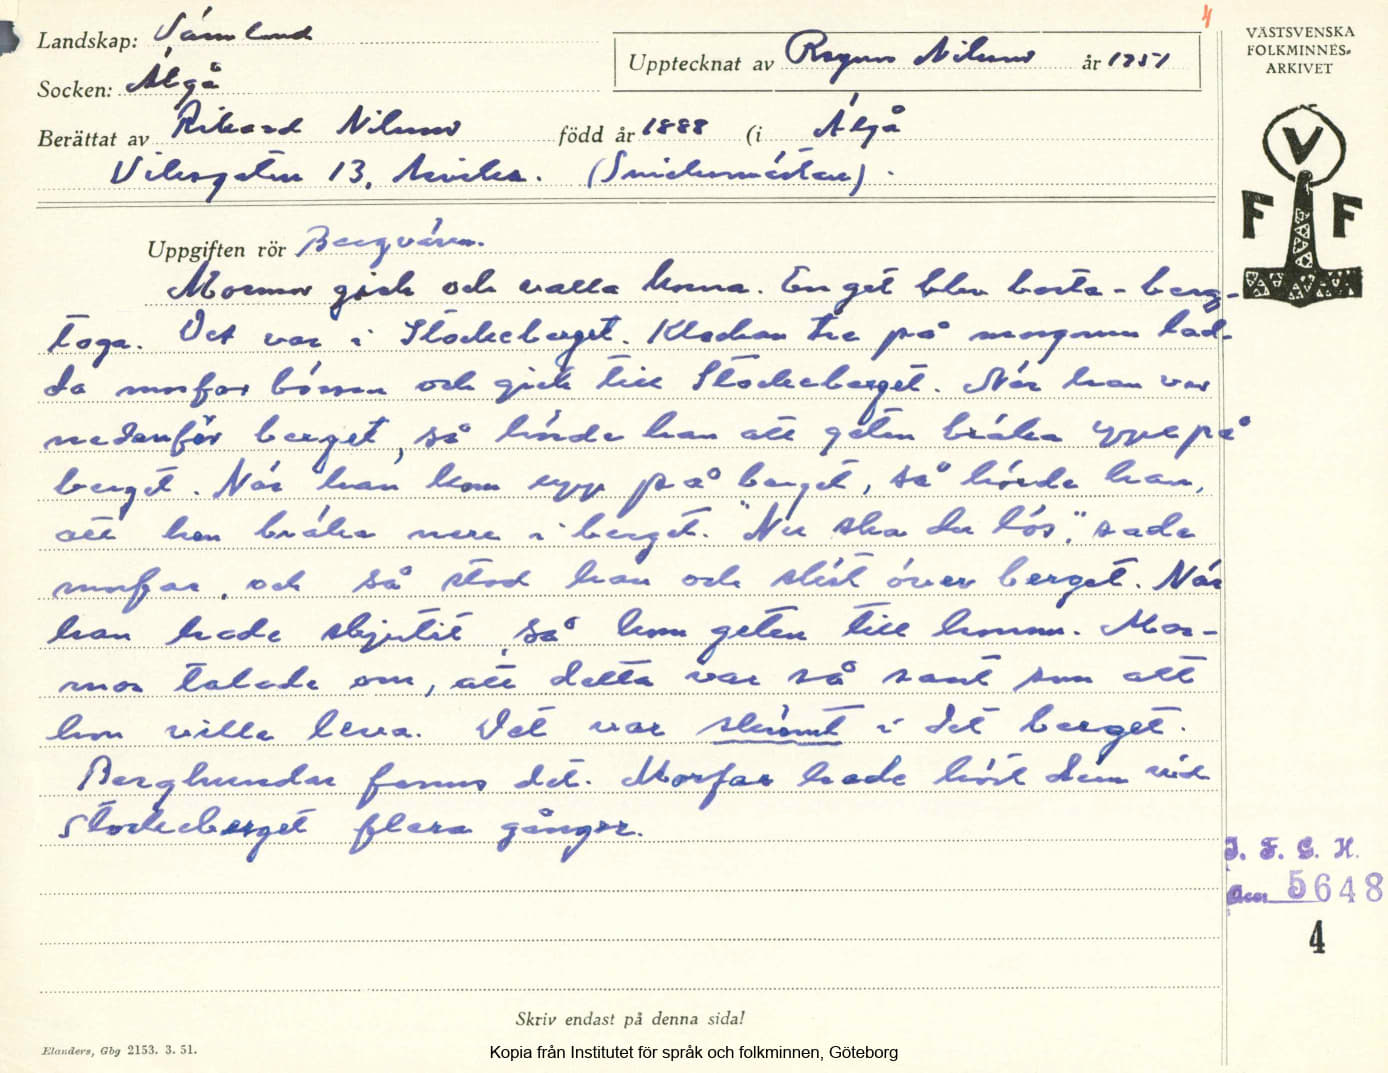 4
VÄSTSVENSKA
FOLKMINNES-
ARKIVET
V
F F
Landskap: Värmland
Uppteknat av Ragnar Nilsson år 1951
Socken: Älgå
Berättat av Rikard Nilsson född år 1888 (i Älgå
Viksgatan 13, Arvika. (Snickermästare).
Uppgiften rör Bergväsen.
Mormor gick och valla korna. En get blev borta - berg-
toga. Det var i Stockeberget. Klockan tre på morgonen lad-
da morfar bössan och gick till Stockeberget. När han var
nedanför berget, så hörde han att geten bräka uppe på
berget. När han kom upp på berget, så hörde han,
att hon bräka nere i berget. "Nu ska du lös", sade
morfar, och så stod han och sköt över berget. När
han hade skjutit, så kom geten till honom. Mor-
mor talade om, att detta var så sant som att
hon ville leva. Det var skrömt i det berget.
Berghundar fanns det. Morfar hade hört dem vid
Stockeberget flera gånger.
I. F. G. H.
Acc. 5648
4
Skriv endast på denna sida!
Elanders, Gbg 2153. 3. 51.
Kopia från Institutet för språk och folkminnen, Göteborg